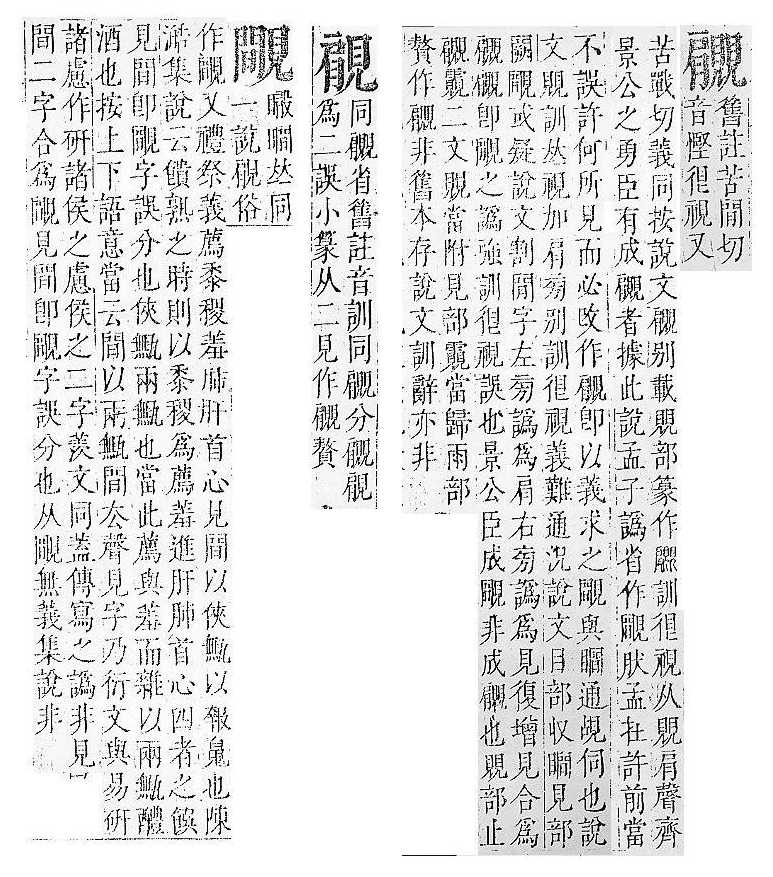 舊註苦閒切
音慳很視又
苦戩切義同按說文別載覞部篆作訓很視从覞肩聲齊
景公之勇臣有成者據此說孟子譌省作覸肰孟在許前當
不誤許何所見而必改作卽以義求之覸與瞷通覗伺也說
文覞訓竝視加肩旁別訓很視義難通況說文目部收瞷見部
闕覸或疑說文割閒字左旁譌爲肩右旁譌爲見復增見合爲
卽覸之譌強訓很視誤也景公臣成覸非成也覞部止
二文覞當附見部當歸雨部
贅作非舊本存說文訓辭亦非
同省舊註音訓同分
爲二誤小篆从二見作贅
覸
瞷竝同
一說俗
作覸又禮祭義薦黍稷羞肺肝首心見間以俠甒以報𩲸也陳
澔集說云饋孰之時則以黍稷爲薦羞進肝肺首心四者之饌
見間卽覸字誤分也俠甒兩甒也當此薦與羞而雜以兩甒醴
酒也按上下語意當云間以兩甒間去聲見字乃衍文與易研
諸慮作研諸侯之慮侯之二字羨文同蓋傳寫之譌非見
間二字合爲覸見間卽覸字誤分也从覸無義集說非